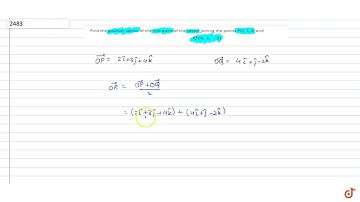 2483
Find the position vector of the mid point of the vector joining the points P(2, 3, 4) and
Q(4, 1, -2)
OP⃗ = 2î+3ĵ+4k̂ OQ⃗ = 4î+ĵ-2k̂
OR⃗ = OP⃗+OQ⃗ / 2
= (2î+3ĵ+4k̂) + (4î+ĵ-2k̂)
doubtnut